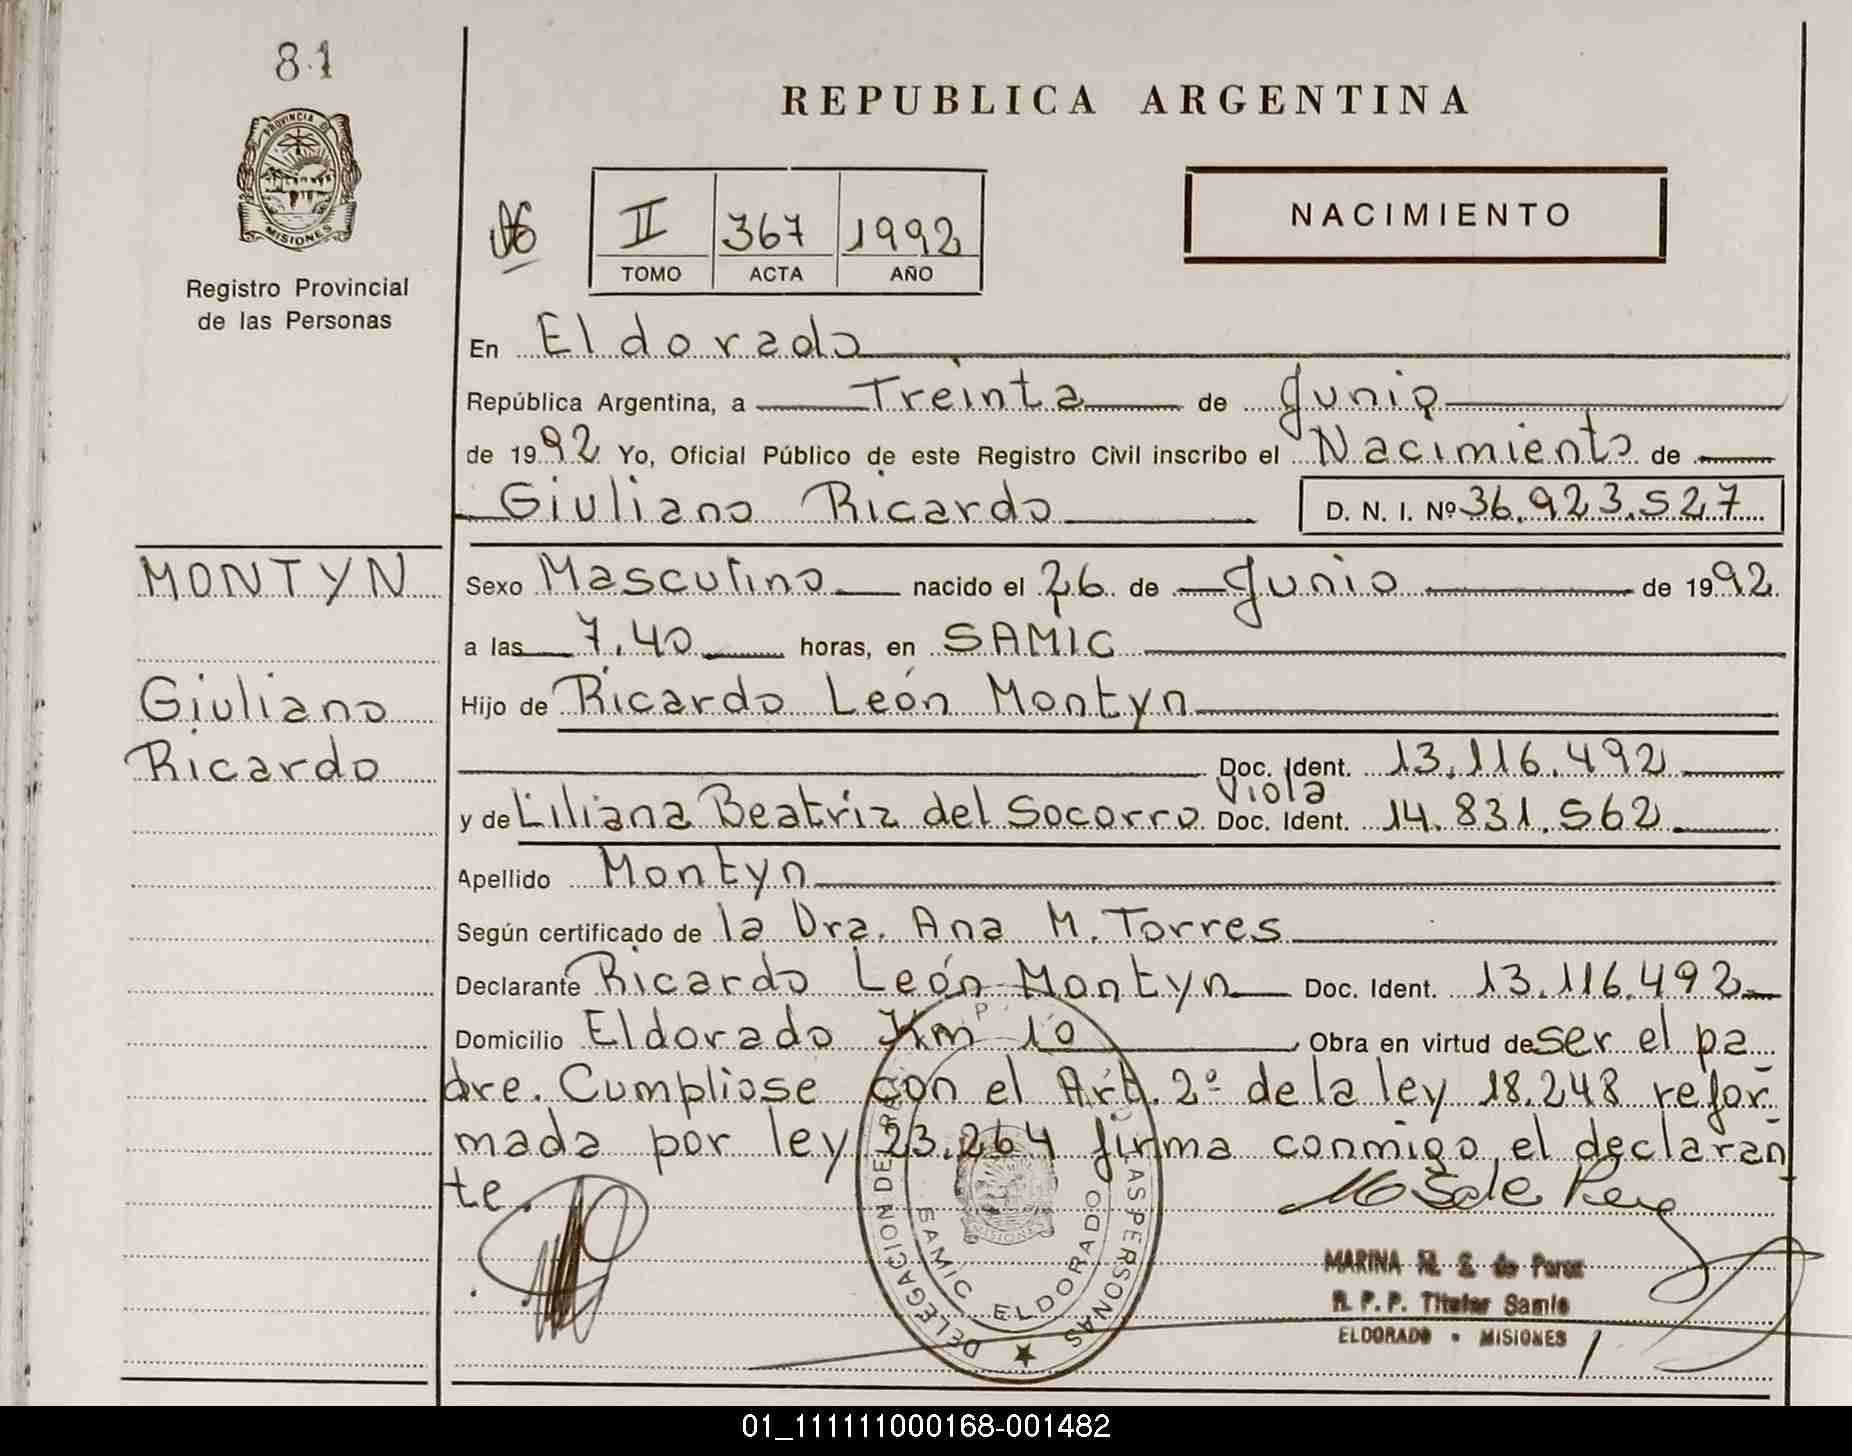 81
PROVINCIA DE
MISIONES
Registro Provincial
de las Personas
REPUBLICA ARGENTINA
II 367 1992
TOMO ACTA AÑO
NACIMIENTO
En Eldorado
República Argentina, a Treinta de Junio
de 1992 Yo, Oficial Público de este Registro Civil inscribo el Nacimiento de
Giuliano Ricardo D. N. I. Nº 36.923.527
MONTYN
Giuliano
Ricardo
Sexo Masculino nacido el 26 de Junio de 1992
a las 7.40 horas, en SAMIC
Hijo de Ricardo León Montyn
Doc. Ident. 13.116.492
Viola
y de Liliana Beatriz del Socorro Doc. Ident. 14.831.562
Apellido Montyn
Según certificado de la Dra. Ana M. Torres
Declarante Ricardo León Montyn Doc. Ident. 13.116.492
Domicilio Eldorado Km 10 Obra en virtud de ser el pa
dre. Cumpliose con el Art. 2º de la ley 18.248 refor
mada por ley 23.264 firma conmigo el declaran
te.
DELEGACION DE LAS PERSONAS
SAMIC ELDORADO
MISIONES
MARINA M. S. de
R. P. P. Titular Samic
ELDORADO - MISIONES
01_111111000168-001482